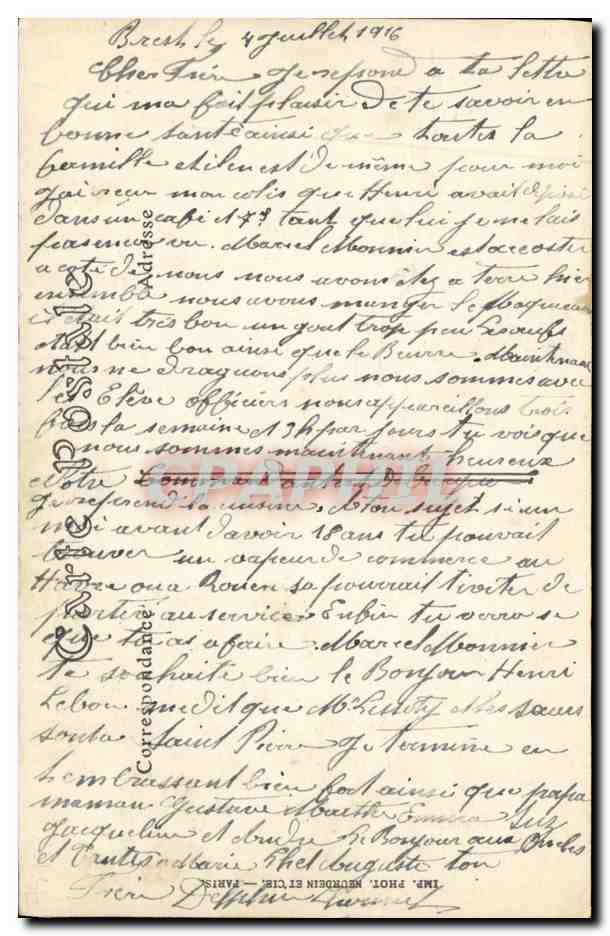 Brest le 4 Juillet 1916
Cher Frére Je repond a ta lettre
qui ma fait plaisir de te savoir en
bonne santé ainsi que toutes la
famille et il en est de même pour moi
J'ai reçu mon colis que Henri avait déposé
dans un café tant que lui je ne lais
pas encore vu. Marcel Monnier est accoster
a coté de nous nous avons étez a terre hier
ensemble nous avons manger le Maquereau
il était très bon un gout trop peu Les œufs
était bien bon ainsi que le Beurre. Maintenant
nous ne draguons plus nous sommes avec
les Eléve officiers nous appareillons trois
fois la semaine et 3h par jours tu vois que
nous sommes maintenant heureux
Notre
Je reprend la même. A ton sujet si un
moi avant d'avoir 18 ans tu pouvait
trouver un vapeur de commerce au
Havre ou a Rouen sa pourrait t'éviter de
partir au service. Enfin tu verra se
que tu as a faire. Marcel Monnier
te souhaite bien le Bonjour Henri
Lebon me dit que Mr et les sœurs
sont a Saint Pierre Je termine en
t'embrassant bien fort ainsi que papa
maman Gustave Marthe Emma
Jacqueline et André Le Bonjour aux Oncles
et Tantes Marie Auguste ton
Frére
Carte Postale
Correspondance
Adresse
IMP. PHOT. NEURDEIN ET CIE. — PARIS
CPAPHIL